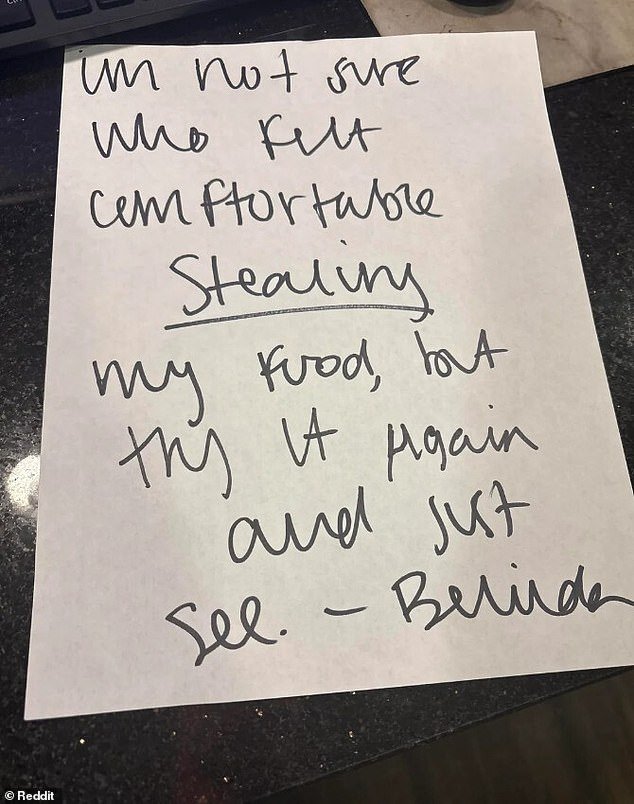 im not sure
who felt
comfortable
Stealing
my food, but
try it Again
and just
see. - Belinda
© Reddit